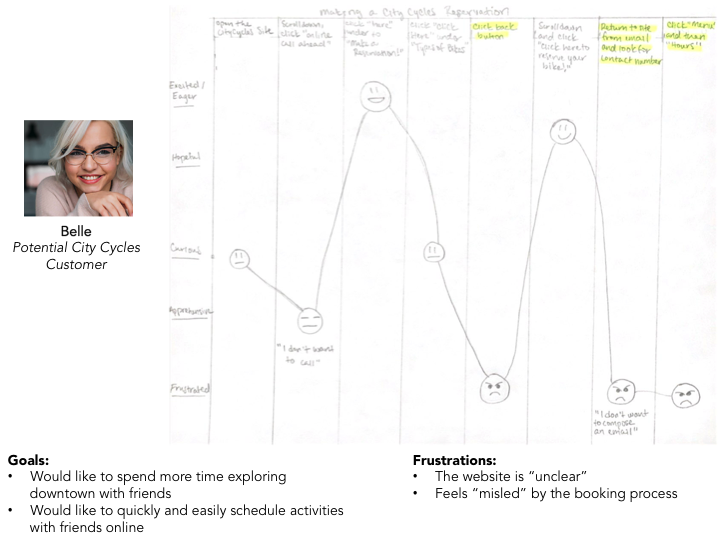 making a City Cycles Reservation!
open the
CityCycles Site
Scrolldown,
click "online
call ahead"
click "here"
under to
"Make a
Reservation!"
click "click
here" under
"Types of Bikes
click back
button
Scrolldown
and click
"click here to
reserve your
bike!"
Return to site
from email
and look for
contact number
click "Menu"
and then
"Hours"
Excited/
Eager
Hopeful
Curious
Apprehensive
Frustrated
"I don't want
to call"
"I don't want
to compose
an email"
Belle
Potential City Cycles
Customer
Goals:
• Would like to spend more time exploring
downtown with friends
• Would like to quickly and easily schedule activities
with friends online
Frustrations:
• The website is “unclear”
• Feels “misled” by the booking process